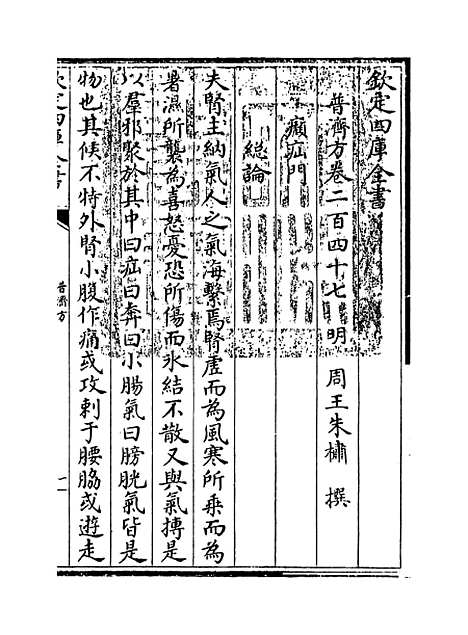 欽定四庫全書
普濟方卷二百四十七 明 周王朱橚 撰
㿗疝門
總論
夫腎主納氣人之氣海繫焉腎虛而為風寒所乗而為
暑濕所襲為喜怒憂恐所傷而氷結不散又與氣摶是
以羣邪聚於其中曰疝曰奔曰小腸氣曰膀胱氣皆是
物也其候不特外腎小腹作痛或攻刺于腰脇或遊走
欽定四庫全書
普濟方
一